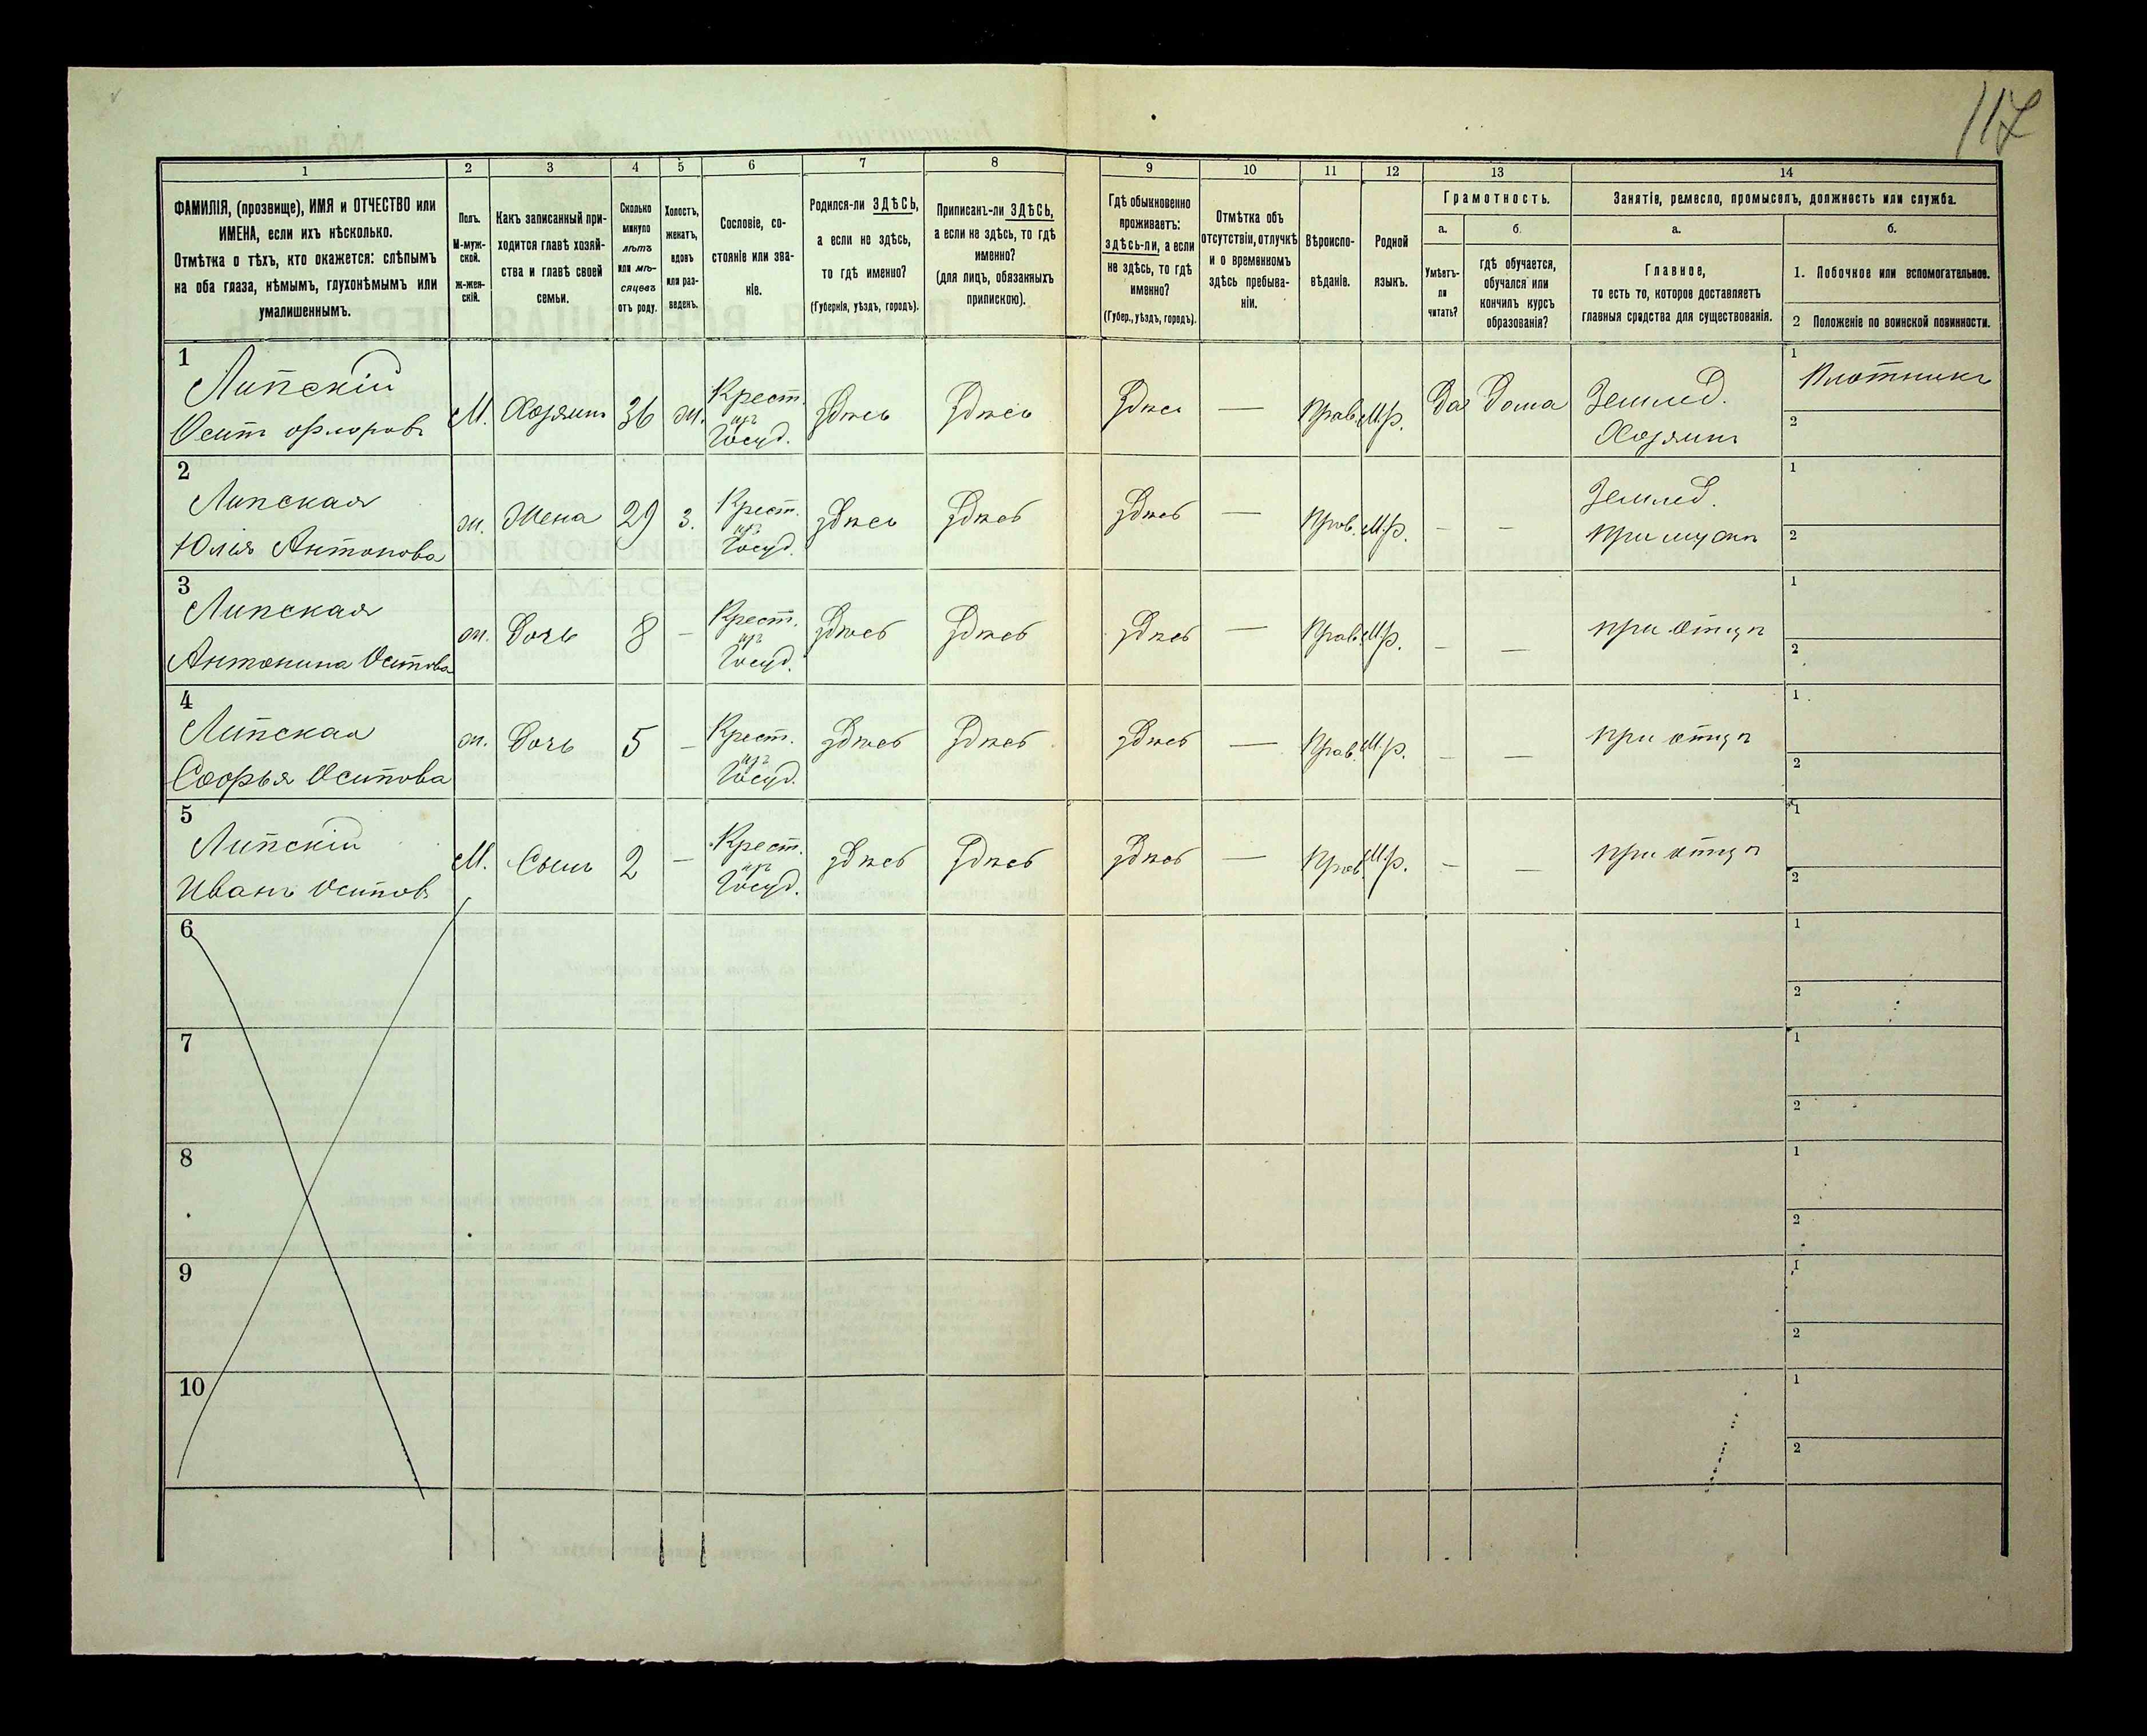 117
1
2
3
4
5
6
7
8
9
10
11
12
13
14
ФАМИЛІЯ, (прозвище), ИМЯ и ОТЧЕСТВО или
ИМЕНА, если ихъ нѣсколько.
Отмѣтка о тѣхъ, кто окажется: слѣпымъ
на оба глаза, нѣмымъ, глухонѣмымъ или
умалишеннымъ.
Полъ.
М-муж-
ской.
Ж-жен-
скій.
Какъ записанный при-
ходится главѣ хозяй-
ства и главѣ своей
семьи.
Сколько
минуло
лѣтъ
или мѣ-
сяцевъ
отъ роду.
Холостъ,
женатъ,
вдовъ
или раз-
веденъ.
Сословіе, со-
стояніе или зва-
ніе.
Родился-ли ЗДѢСЬ,
а если не здѣсь,
то гдѣ именно?
(Губернія, уѣздъ, городъ).
Приписанъ-ли ЗДѢСЬ,
а если не здѣсь, то гдѣ
именно?
(для лицъ, обязанныхъ
припискою).
Гдѣ обыкновенно
проживаетъ:
ЗДѢСЬ-ЛИ, а если
не здѣсь, то гдѣ
именно?
(Губер., уѣздъ, городъ).
Отмѣтка объ
отсутствіи, отлучкѣ
и о временномъ
здѣсь пребыва-
ніи.
Вѣроиспо-
вѣданіе.
Родной
языкъ.
Грамотность.
а.
Умѣетъ-
ли
читать?
б.
гдѣ обучается,
обучался или
кончилъ курсъ
образованія?
Занятія, ремесло, промыселъ, должность или служба.
а.
Главное,
то есть то, которое доставляетъ
главныя средства для существованія.
б.
1. Побочное или вспомогательное.
2 Положеніе по воинской повинности.
1
Липскій
Осипъ Флоровъ
М. Хозяинъ 36 ж. Крест.
изъ
Госуд.
Здѣсь Здѣсь Здѣсь — Прав. М.р. Да Дома Землед.
Хозяинъ
1 Плотникъ
2
2
Липская
Юлія Антонова
ж. Жена 29 з. Крест.
изъ
Госуд.
здѣсь Здѣсь Здѣсь — Прав. М.р. — — Землед.
При мужѣ
1
2
3
Липская
Антонина Осипова
ж. Дочь 8 — Крест.
изъ
Госуд.
Здѣсь Здѣсь Здѣсь — Прав. М.р. — — при отцѣ
1
2
4
Липская
Софья Осипова
ж. Дочь 5 — Крест.
изъ
Госуд.
Здѣсь Здѣсь Здѣсь — Прав. М.р. — — при отцѣ
1
2
5
Липскій
Иванъ Осиповъ
М. Сынъ 2 — Крест.
изъ
Госуд.
Здѣсь Здѣсь Здѣсь — Прав. М.р. — — при отцѣ
1
2
6
1
2
7
1
2
8
1
2
9
1
2
10
1
2